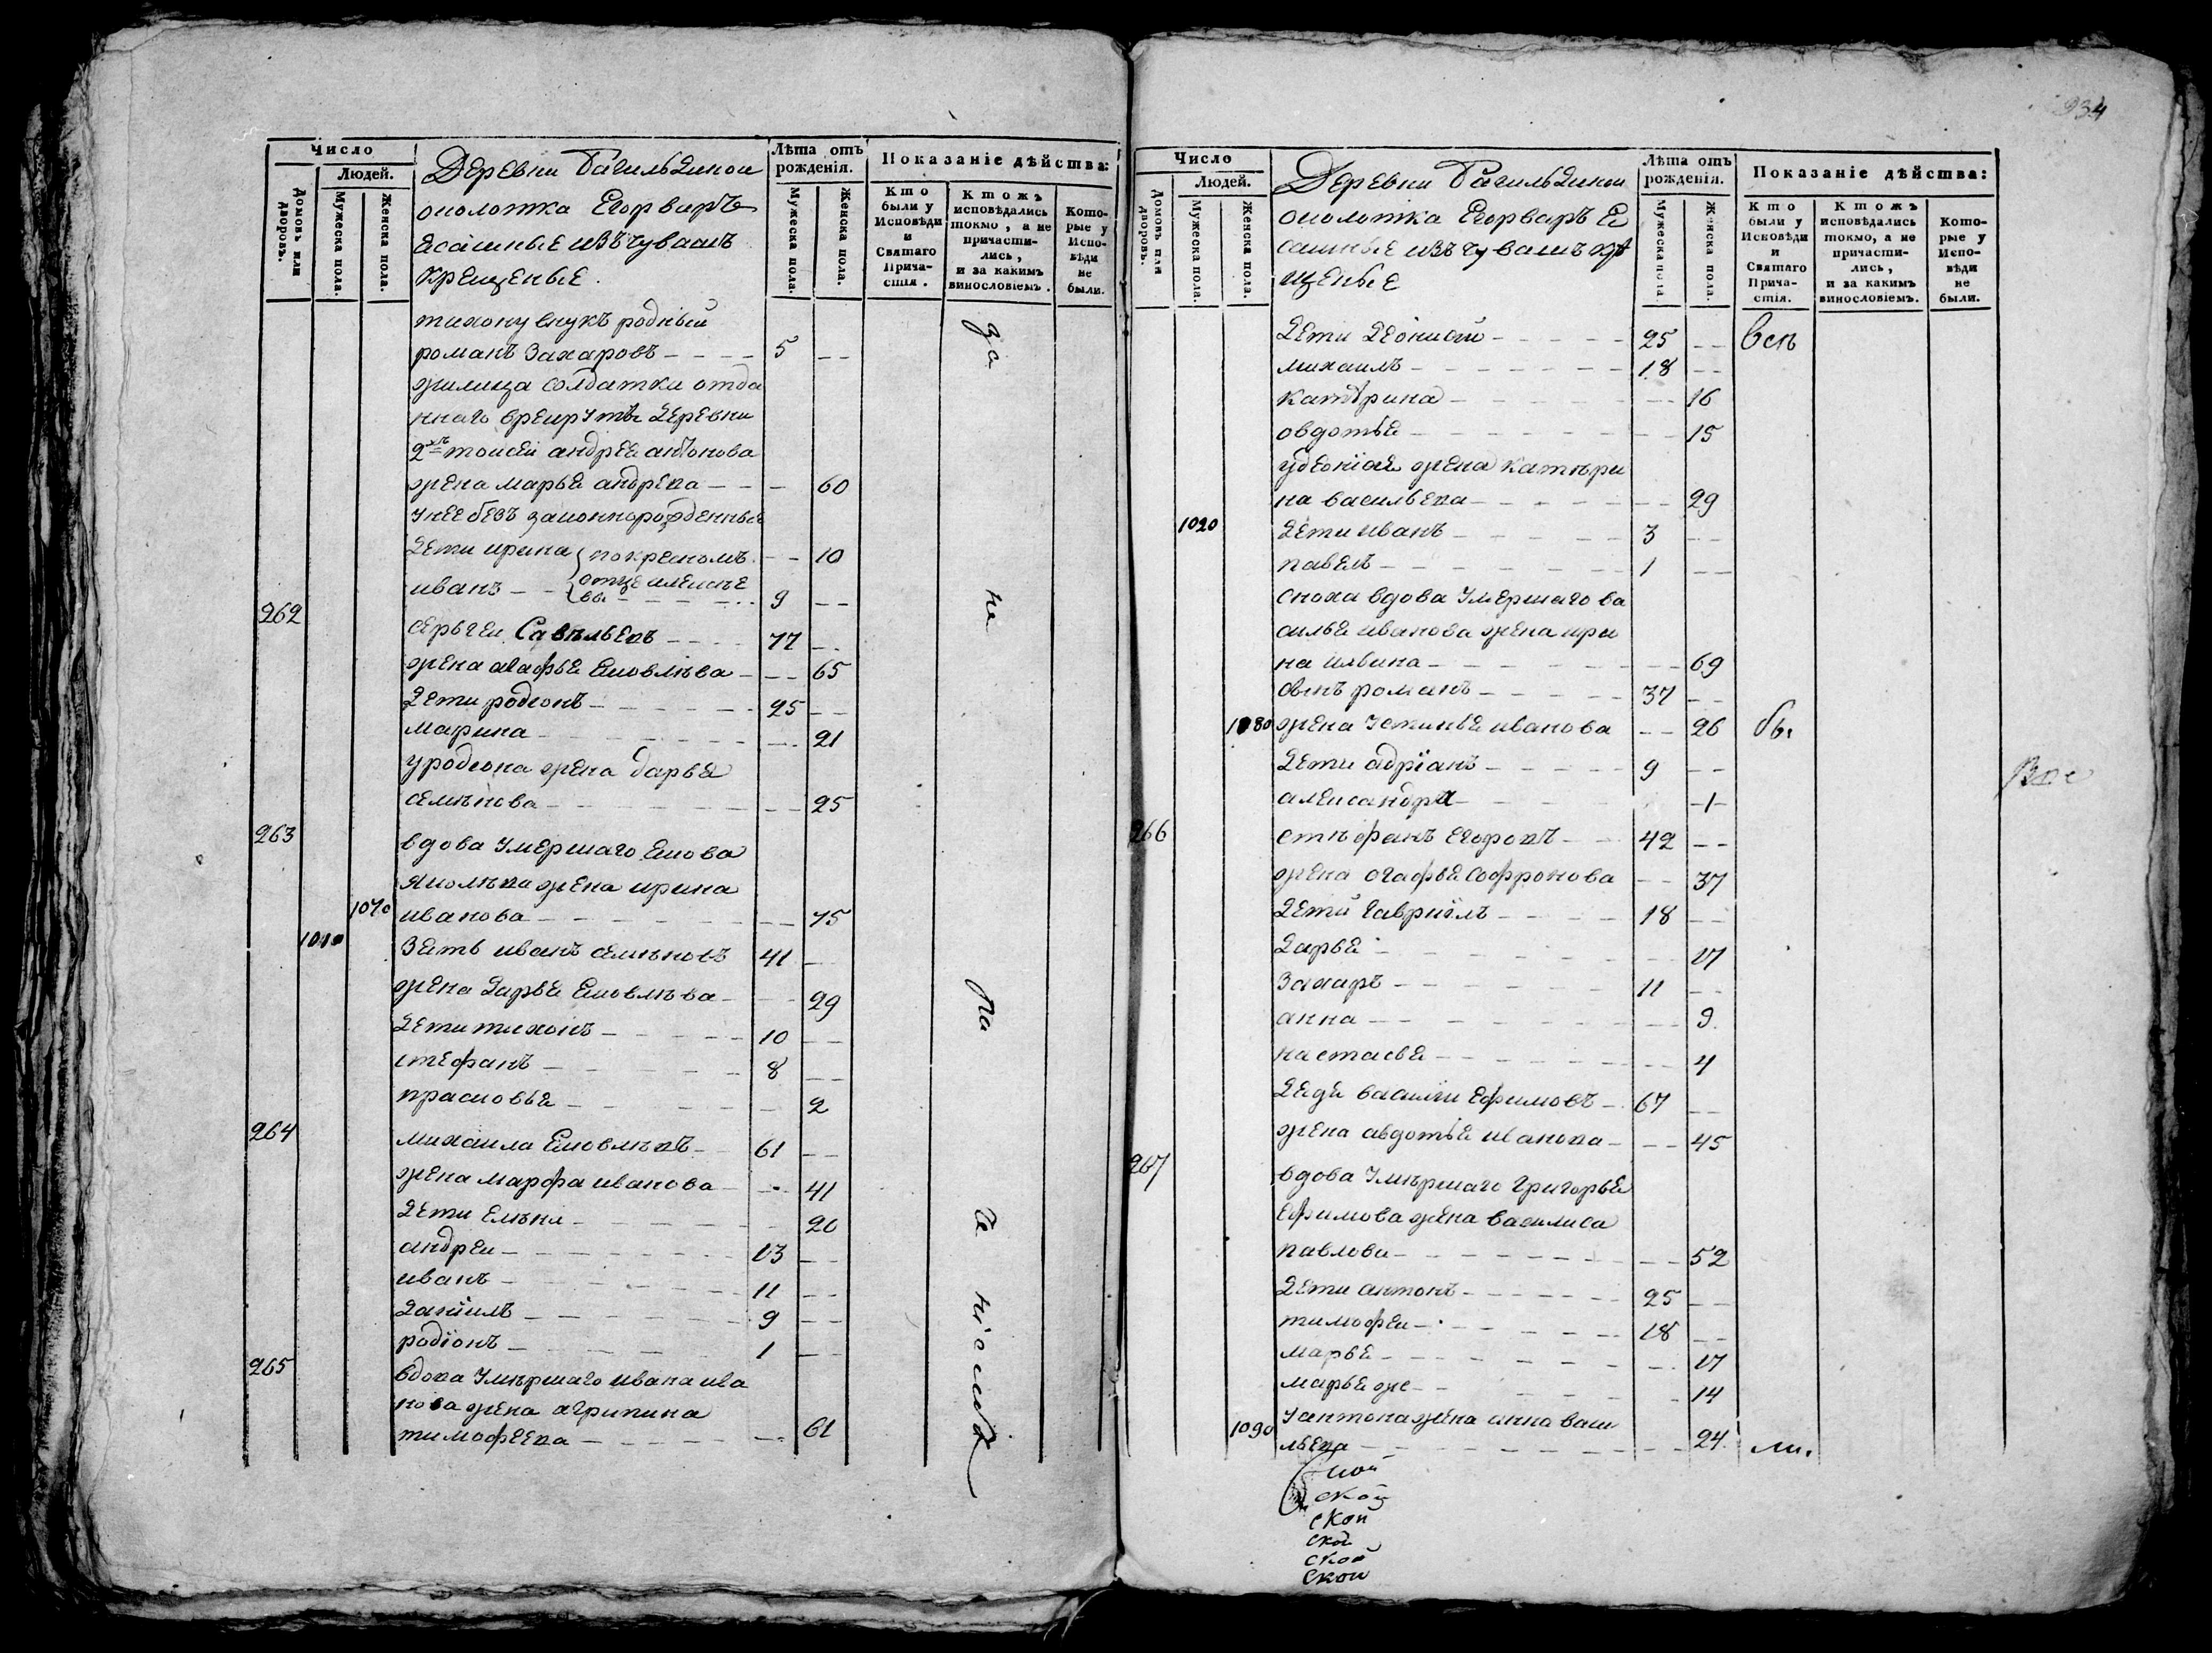 Число
Людей.
Домовъ или дворовъ.
Мужеска пола.
Женска пола.
Деревни Багильдинои
околотка Егорваръ
ясашные изъ чувашъ
крещеные.
Лѣта отъ рожденія.
Мужеска пола.
Женска пола.
Показаніе дѣйства:
Кто были у Исповѣди и Святаго Причастія.
Ктожъ исповѣдались токмо, а не причастились, и за какимъ винословіемъ.
Которые у Исповѣди не были.
тихону внукъ родный
романъ Захаровъ - - - - 5 - -
жилица солдатка отда
ннаго врекруты деревни
андрея антонова
жена марья андрева - - - 60
унее беззаконнорожденныя
дети ирина покресному - - 10
иванъ - - отце алексѣе
вы - - - - 9 - -
262
сергеи Савельевъ - - - - 77 - -
жена агафья Яковлѣва - - - 65
дети родионъ - - - - - 25 - -
марина - - - - - - 21
уродиона жена дарья
семѣнова - - - - - - 25
263
вдова умершаго Якова
жена ирина
1070 иванова - - - - - - 75
Зять иванъ семѣновъ 41 - -
жена дарья Яковлѣва - - - 29
дети тихонъ - - - - - 10 - -
стефанъ - - - - - - 8 - -
прасковья - - - - - - 2
264
михаила Яковлѣвъ - - 61 - -
жена марфа иванова - - - 41
дети елѣна - - - - - 20
андреи - - - - - - 13 - -
иванъ - - - - - - 11 - -
данiилъ - - - - - - 9 - -
родiонъ - - - - - - 1 - -
265
вдова умѣршаго ивана ива
нова жена агрипина
тимофеева - - - - - - 61
за
не
934
Число
Людей.
Домовъ или дворовъ.
Мужеска пола.
Женска пола.
Деревни Багильдинои
околотка Егорваръ Я
сашные изъ чувашъ кре
щеные
Лѣта отъ рожденія.
Мужеска пола.
Женска пола.
Показаніе дѣйства:
Кто были у Исповѣди и Святаго Причастія.
Ктожъ исповѣдались токмо, а не причастились, и за какимъ винословіемъ.
Которые у Исповѣди не были.
дети - - - - - 25 - - Всѣ
михаилъ - - - - - - - 18 - -
катерина - - - - - - - 16
овдотья - - - - - - - 15
жена катѣри
на васильева - - - - - - 29
1020 дети иванъ - - - - - 3 - -
павелъ - - - - - - 1 - -
сноха вдова умершаго ва
силья иванова жена ири
на - - - - - - - 69
сынъ романъ - - - - - 37 - -
1080 жена устинья иванова - - 26 бы
дети адрiанъ - - - - - 9 - -
александра - - - - 1
266
стѣфанъ егоровъ - - - 42 - -
жена огафья софронова - - 37
дети гаврiилъ - - - - 18 - -
дарья - - - - - - - 17
Захаръ - - - - - - 11 - -
анна - - - - - - - 9
настасья - - - - - - - 4
дядя василiи ефимовъ - 67 - -
жена авдотья иванова - - - 45
267
вдова умѣршаго григорья
ефимова жена василиса
павлова - - - - - - - 52
дети антонъ - - - - - 25 - -
тимофеи - - - - - - 18 - -
марья - - - - - - - 17
марья же - - - - - - 14
уантона жена анна васи
1090 льева - - - - - - - 24 ли.
ской
ской
ской
ской